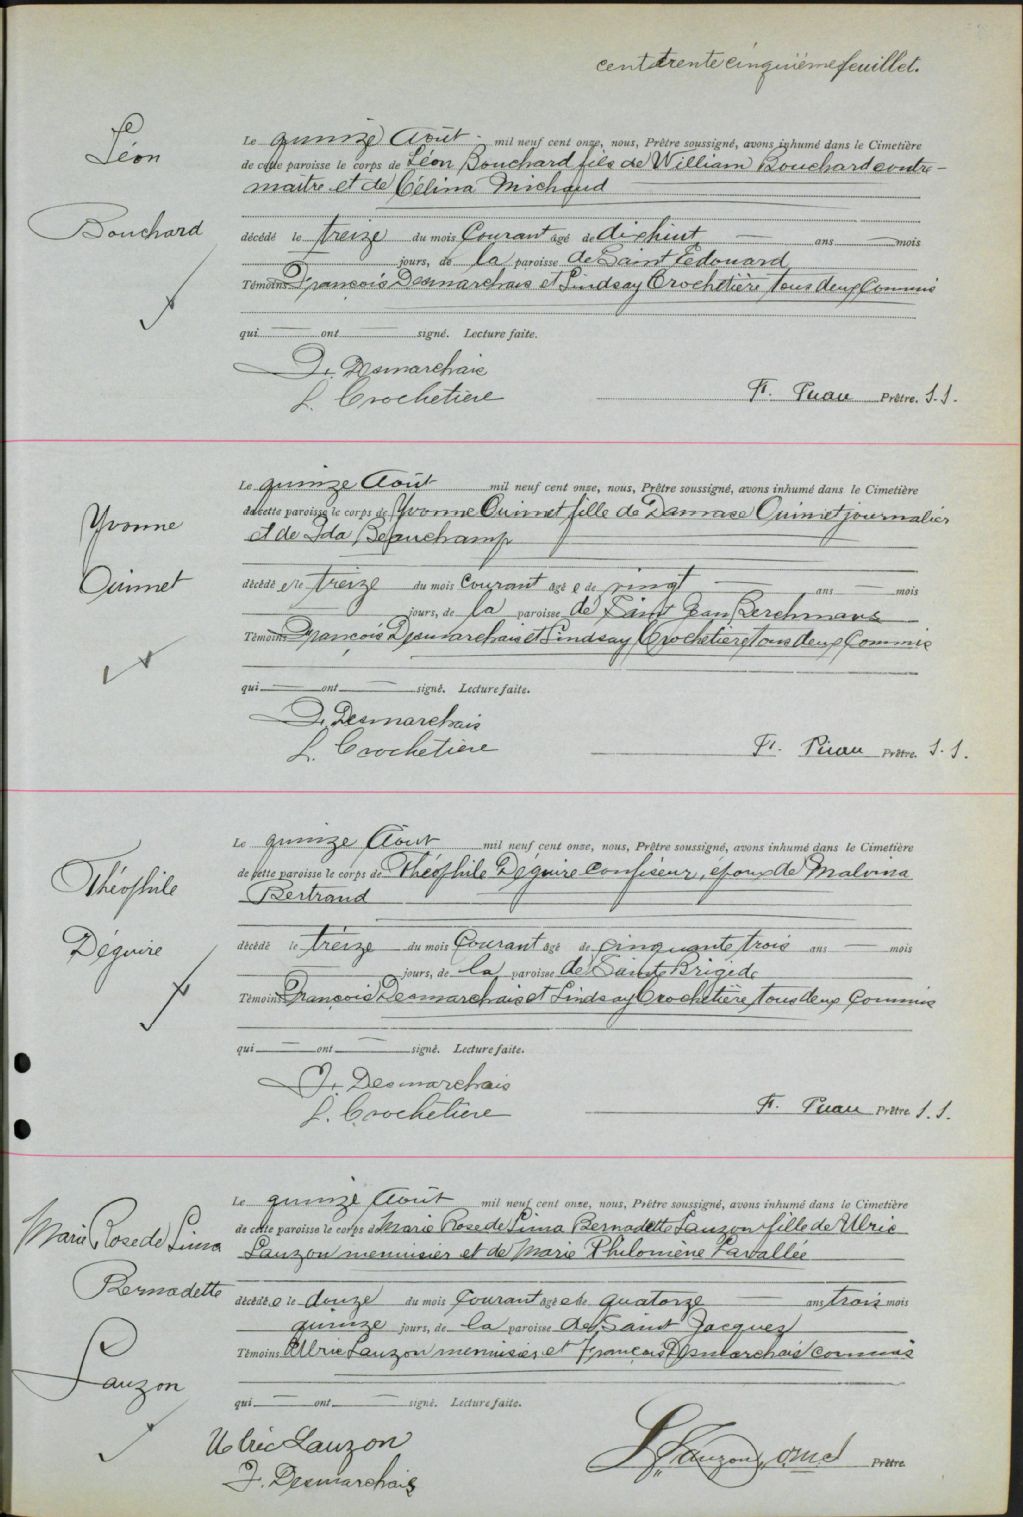 cent trente cinquième feuillet.
Léon
Bouchard
Le quinze Août mil neuf cent onze, nous, Prêtre soussigné, avons inhumé dans le Cimetière
de cette paroisse le corps de Léon Bouchard fils de William Bouchard contre-
maître et de Célina Michaud
décédé le treize du mois Courant âgé de dixhuit — ans — mois
— jours, de la paroisse de Saint Edouard
Témoins François Desmarchais et Lindsay Crochetière tous deux Commis
qui — ont — signé. Lecture faite.
F. Desmarchais
L. Crochetière
F. Prêtre. S.S.
Yvonne
Ouimet
Le quinze Août mil neuf cent onze, nous, Prêtre soussigné, avons inhumé dans le Cimetière
de cette paroisse le corps de Yvonne Ouimet fille de Damase Ouimet journalier
et de Ida Beauchamp
décédée le treize du mois courant âgée de vingt — ans — mois
— jours, de la paroisse de Saint Jean Berchmans
Témoins François Desmarchais et Lindsay Crochetière tous deux Commis
qui — ont — signé. Lecture faite.
F. Desmarchais
L. Crochetière
F. Prêtre. S.S.
Théophile
Déguire
Le quinze Août mil neuf cent onze, nous, Prêtre soussigné, avons inhumé dans le Cimetière
de cette paroisse le corps de Théophile Déguire confiseur, époux de Malvina
Bertrand
décédé le treize du mois Courant âgé de cinquante trois ans — mois
— jours, de la paroisse de Sainte Brigide
Témoins François Desmarchais et Lindsay Crochetière tous deux Commis
qui — ont — signé. Lecture faite.
F. Desmarchais
L. Crochetière
F. Prêtre S.S.
Marie Rose de Lima
Bernadette
Lauzon
Le quinze Août mil neuf cent onze, nous, Prêtre soussigné, avons inhumé dans le Cimetière
de cette paroisse le corps de Marie Rose de Lima Bernadette Lauzon fille de Ulric
Lauzon menuisier et de Marie Philomène Lavallée
décédée le douze du mois Courant âgée de quatorze — ans trois mois
quinze jours, de la paroisse de Saint Jacques
Témoins Ulric Lauzon menuisier et François Desmarchais commis
qui — ont — signé. Lecture faite.
Ulric Lauzon
F. Desmarchais
Lauzon, o.m.i. Prêtre.